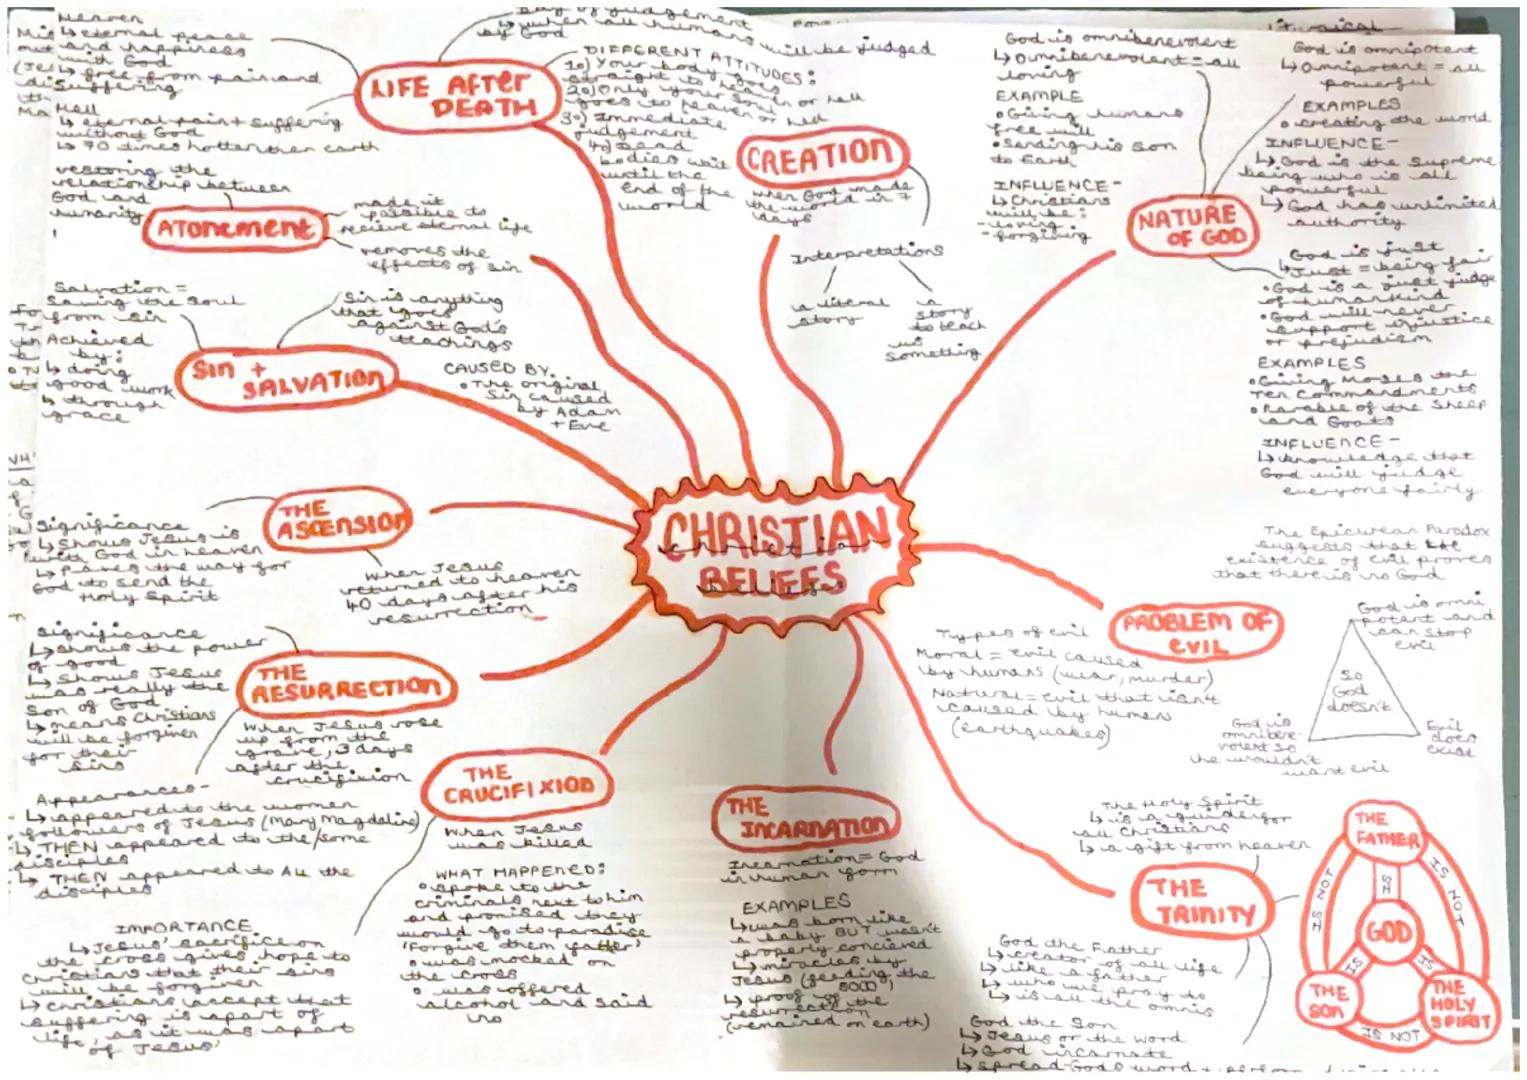 Heaven
↳ eternal peace
and happiness
with God
↳ free from pain and
suffering
Hell
↳ eternal pain + suffering
without God
↳ 70 times hotter then earth
LIFE AFTER
DEATH
Day of judgement
↳ when all humans will be judged
by God
DIFFERENT ATTITUDES:
1o) Your body goes
straight to heaven
2o) Only your soul
goes to heaven or hell
3o) Immediate
judgement
4o) Dead
bodies wait
until the
end of the
world
restoring the
relationship between
God and
humanity
ATONEMENT
made it
possible to
recieve eternal life
removes the
effects of sin
CREATION
when God made
the world in 7
days
Interpretations
a literal
story
a
story
to teach
us
something
God is omnibenevolent
↳ Omnibenevolent = all
loving
EXAMPLE
• Giving humans
free will
• Sending his son
to Earth
INFLUENCE -
↳ Christians
will be:
- loving
- forgiving
NATURE
OF GOD
God is omnipotent
↳ Omnipotent = all
powerful
EXAMPLES
• creating the world
INFLUENCE -
↳ God is the supreme
being who is all
powerful
↳ God has unlimited
authority
God is just
↳ Just = being fair
• God is a just judge
of humankind
• God will never
support injustice
or prejudism
EXAMPLES
• Giving Moses the
Ten Commandments
• Parable of the Sheep
and Goats
INFLUENCE -
↳ knowledge that
God will judge
everyone fairly
Salvation =
Saving the soul
from sin
Achieved
by:
↳ doing
good work
↳ through
grace
SIN +
SALVATION
Sin is anything
that goes
against God's
teachings
CAUSED BY.
• The original
Sin caused
by Adam
+ Eve
CHRISTIAN
BELIEFS
THE
ASCENSION
Significance
↳ Shows Jesus is
with God in heaven
↳ Paves the way for
God to send the
Holy Spirit
When Jesus
returned to heaven
40 days after his
resurrection
THE
RESURRECTION
Significance
↳ shows the power
of good
↳ Shows Jesus
was really the
Son of God
↳ means Christians
will be forgiven
for their
sins
When Jesus rose
up from the
grave, 3 days
after the
crucifixion
Appearances -
↳ appeared to the women
followers of Jesus (Mary Magdaline)
↳ THEN appeared to the/some
disciples
↳ THEN appeared to ALL the
disciples
THE
CRUCIFIXION
When Jesus
was killed
WHAT HAPPENED:
• spoke to the
criminals next to him
and promised they
would go to paradise
'Forgive them father'
• was mocked on
the cross
• was offered
alcohol and said
no
IMPORTANCE
↳ Jesus' sacrifice on
the cross gives hope to
Christians that their sins
will be forgiven
↳ Christians accept that
suffering is apart of
life, as it was apart
of Jesus'
THE
INCARNATION
Incarnation = God
in human form
EXAMPLES
↳ was born like
a baby BUT wasn't
properly concieved
↳ miracles by
Jesus (feeding the
5000)
↳ proof of the
resurrection
(remained on earth)
The Epicurean Paradox
suggests that the
existence of evil proves
that there is no God
PROBLEM OF
EVIL
Types of evil
Moral = evil caused
by humans (war, murder)
Natural = evil that isn't
caused by human
(earthquakes)
God is omni
potent and
can stop
evil
So
God
doesn't
God is
omnibene-
volent so
he wouldn't
want evil
Evil
does
exist
The Holy Spirit
↳ is a guide for
all Christians
↳ a gift from heaven
THE
TRINITY
God the Father
↳ creator of all life
↳ like a father
↳ who we pray to
↳ is all the omnis
God the Son
↳ Jesus or the word
↳ God incarnate
↳ spread God's word +
THE
FATHER
IS NOT
IS
IS NOT
GOD
IS
IS
THE
SON
THE
HOLY
SPIRIT
IS NOT